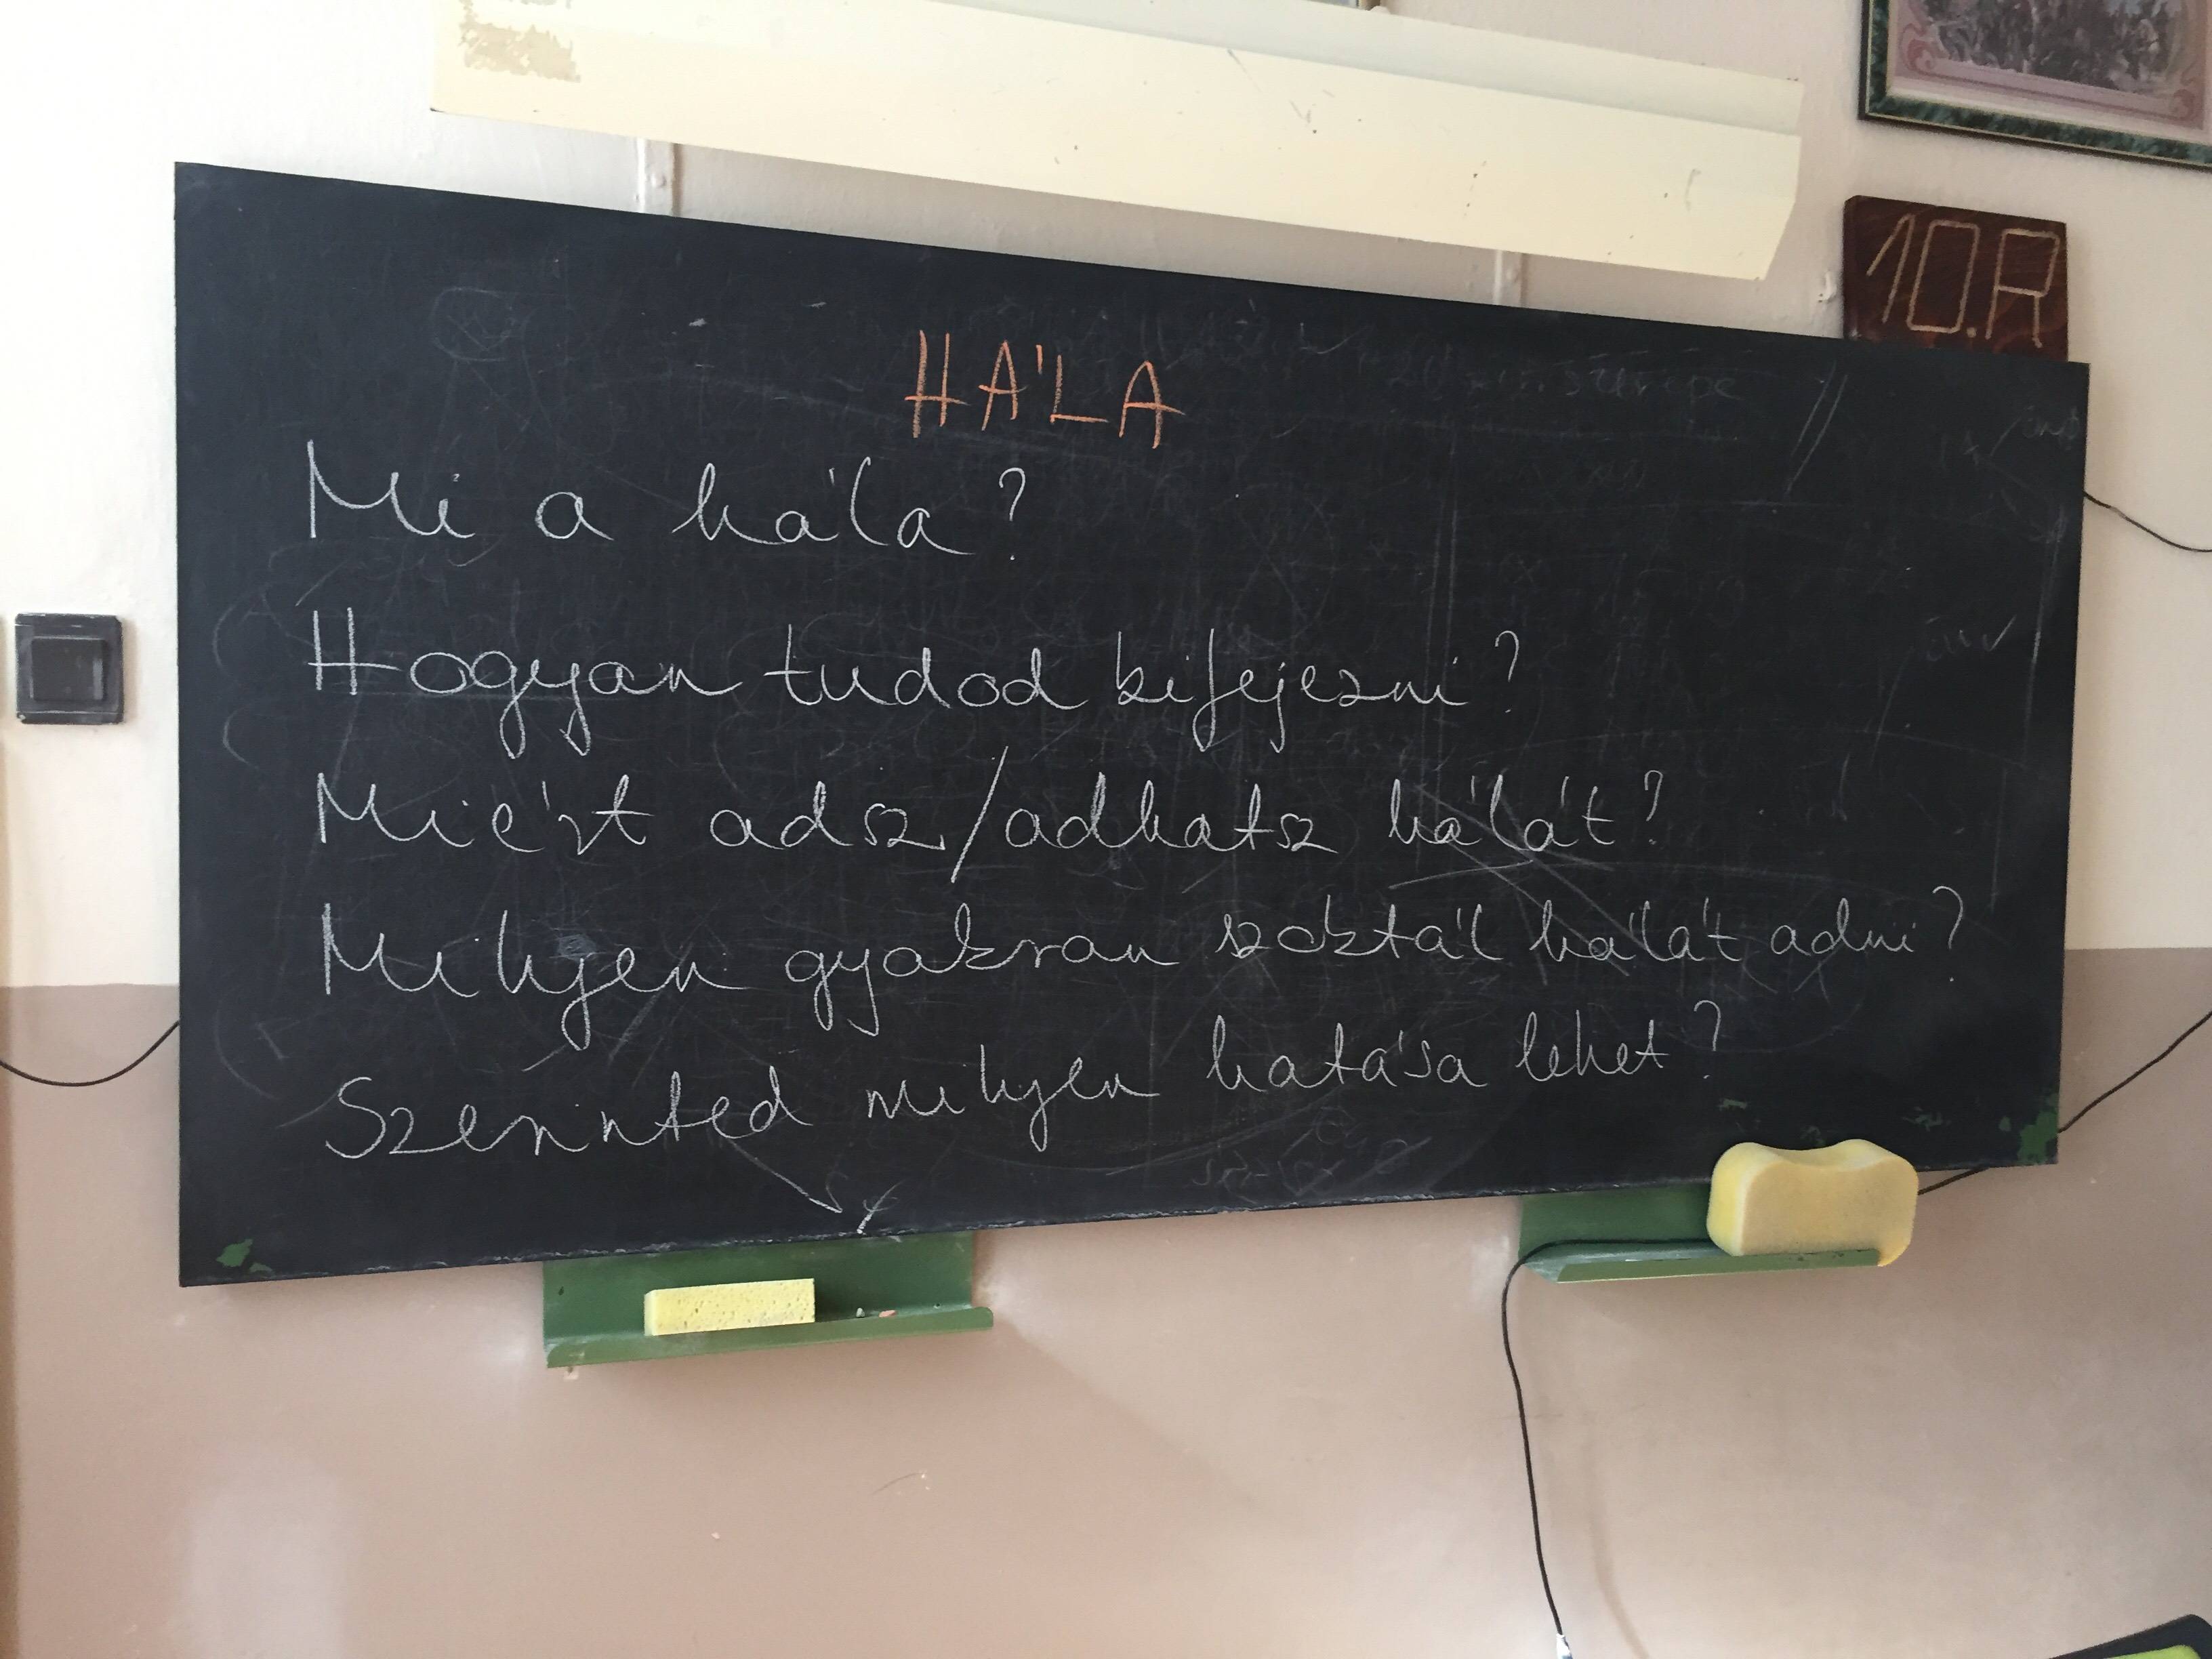 10.R
HÁLA
Mi a hála?
Hogyan tudod kifejezni?
Miért adsz/adhatsz hálát?
Milyen gyakran szoktál hálát adni?
Szerinted milyen hatása lehet?